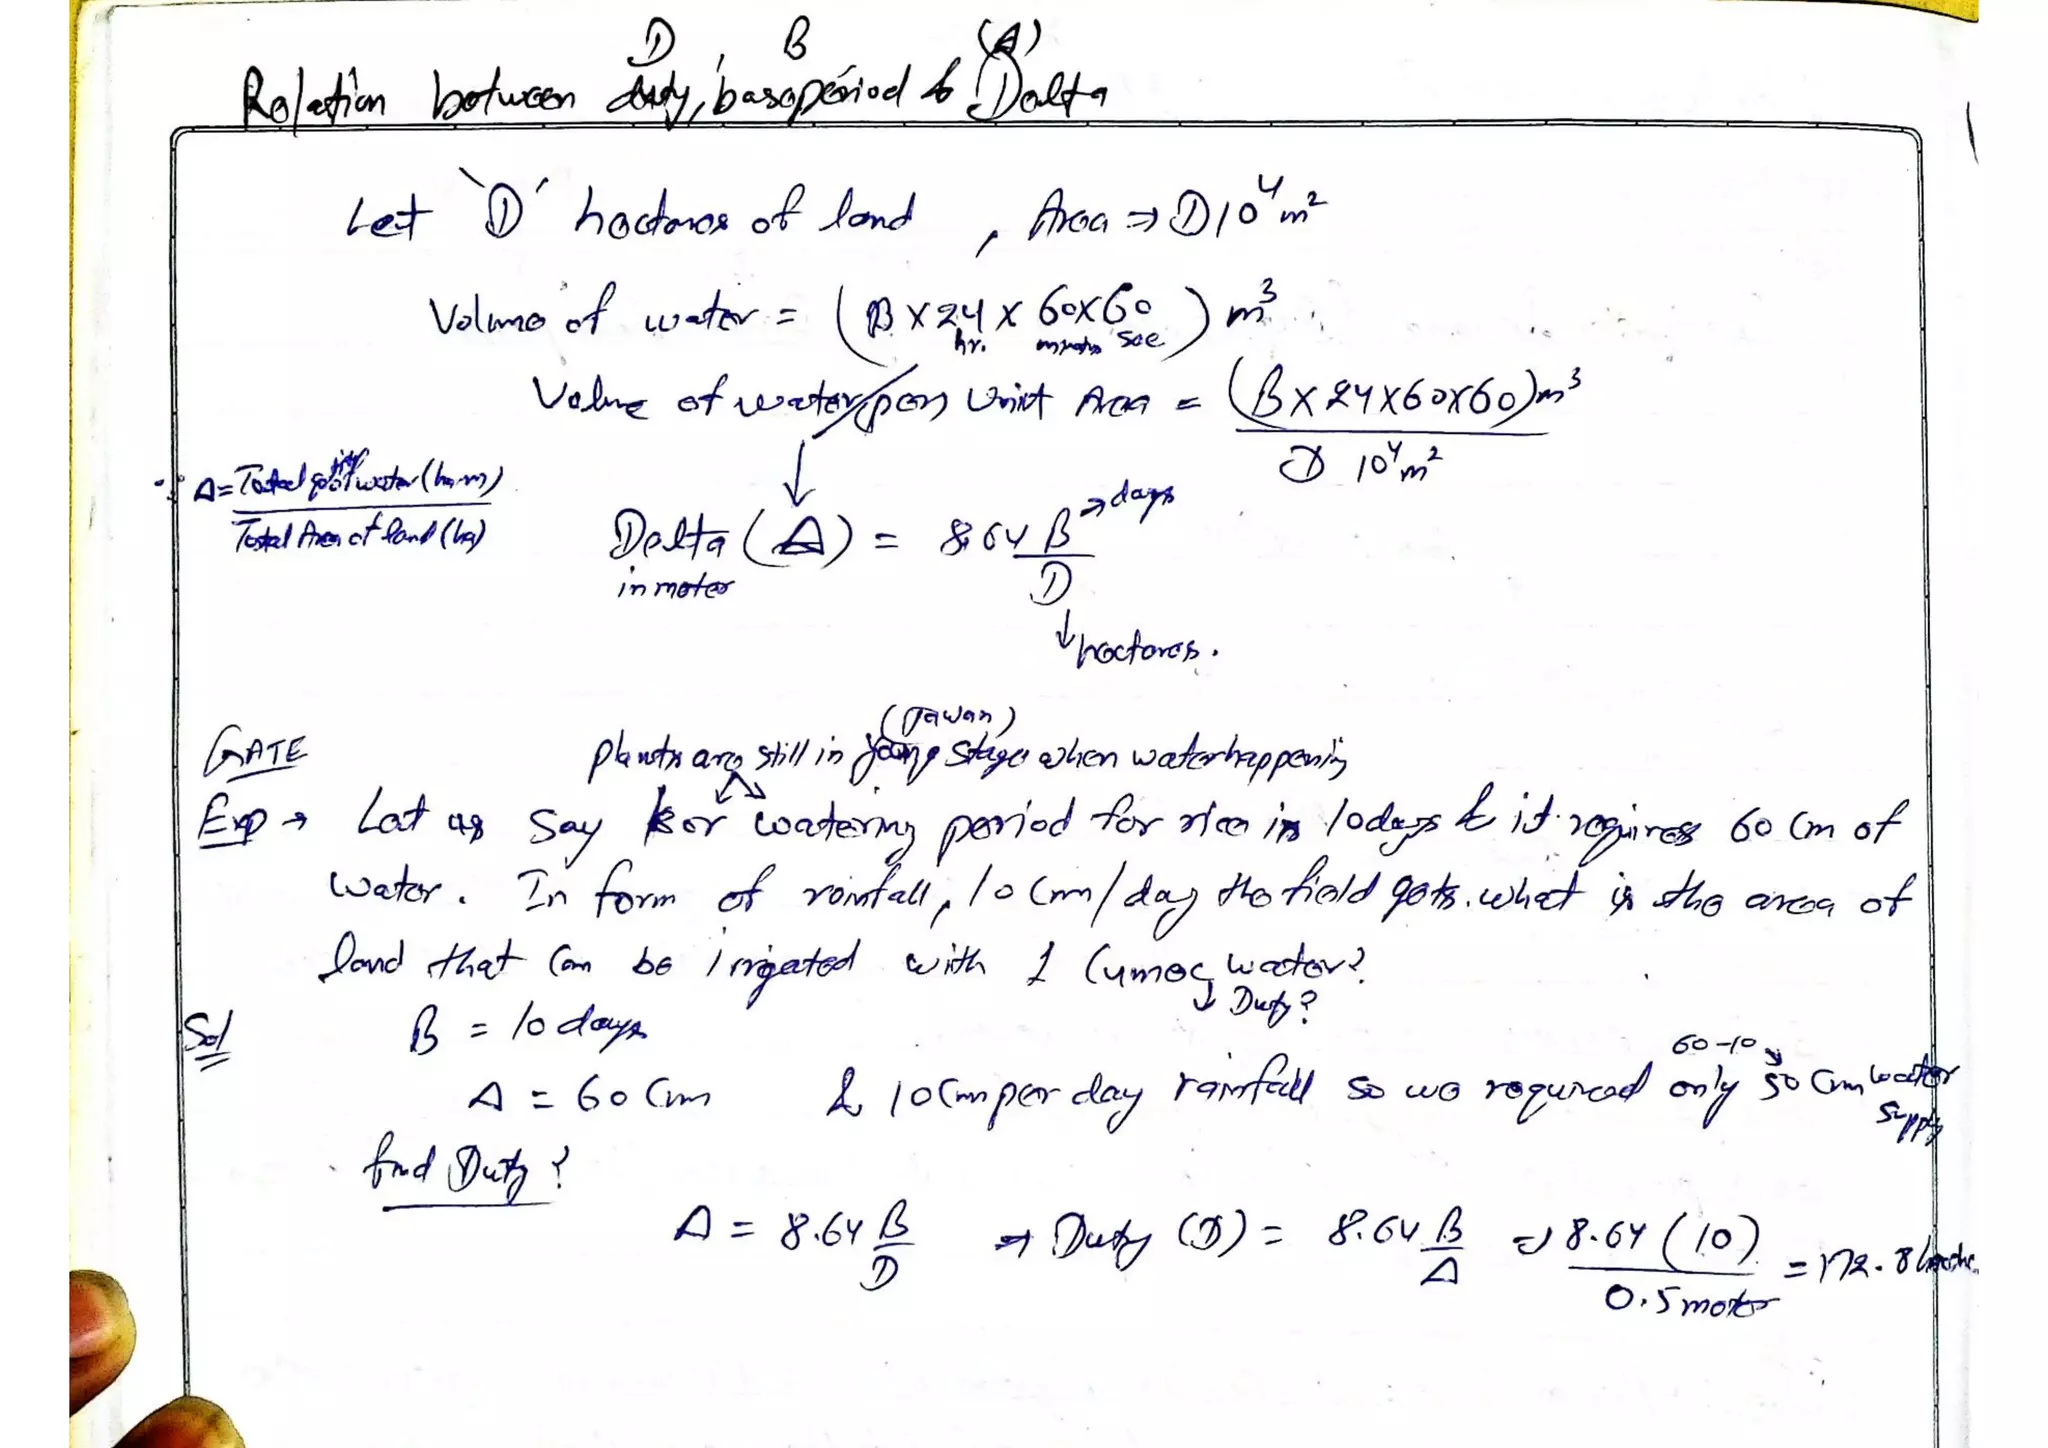 D , B (Δ)
Relation between duty, base period & Delta
Let 'D' hectares of land , Area ⇒ D10⁴m²
Volume of water = (B x 24 x 60x60) m³
hr. minutes sec
Volume of water/per Unit Area = (B x 24x60x60)m³
D 10⁴m²
∵ Δ = Total qty of water (ha.m)
Total Area of land (ha)
Delta (Δ) = 8.64 B → days
in meter D
↓ hectares.
GATE
(Jawan)
plants are still in young stage when water happening
Exp → Let us say Kor watering period for rice is 10 days & it requires 60 cm of
water. In form of rainfall, 10 cm/day the field gets. what is the area of
land that can be irrigated with 1 Cumec water?
↓ Duty?
Sol B = 10 days
60-10
Δ = 60 Cm & 10 Cm per day rainfall so we required only 50 Cm water
supply
find Duty?
Δ = 8.64 B/D ⇒ Duty (D) = 8.64 B/Δ ⇒ 8.64 (10)/0.5 meter = 172.8 hectare